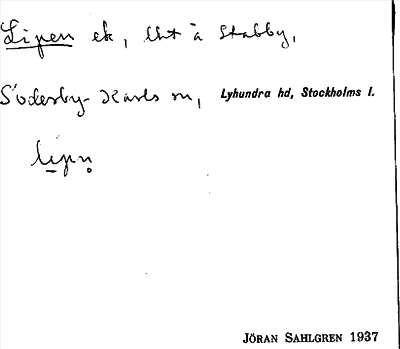 Lipen ek, lht å Stabby,
Söderby-Karls sn, Lyhundra hd, Stockholms l.
lipn̥
JÖRAN SAHLGREN 1937